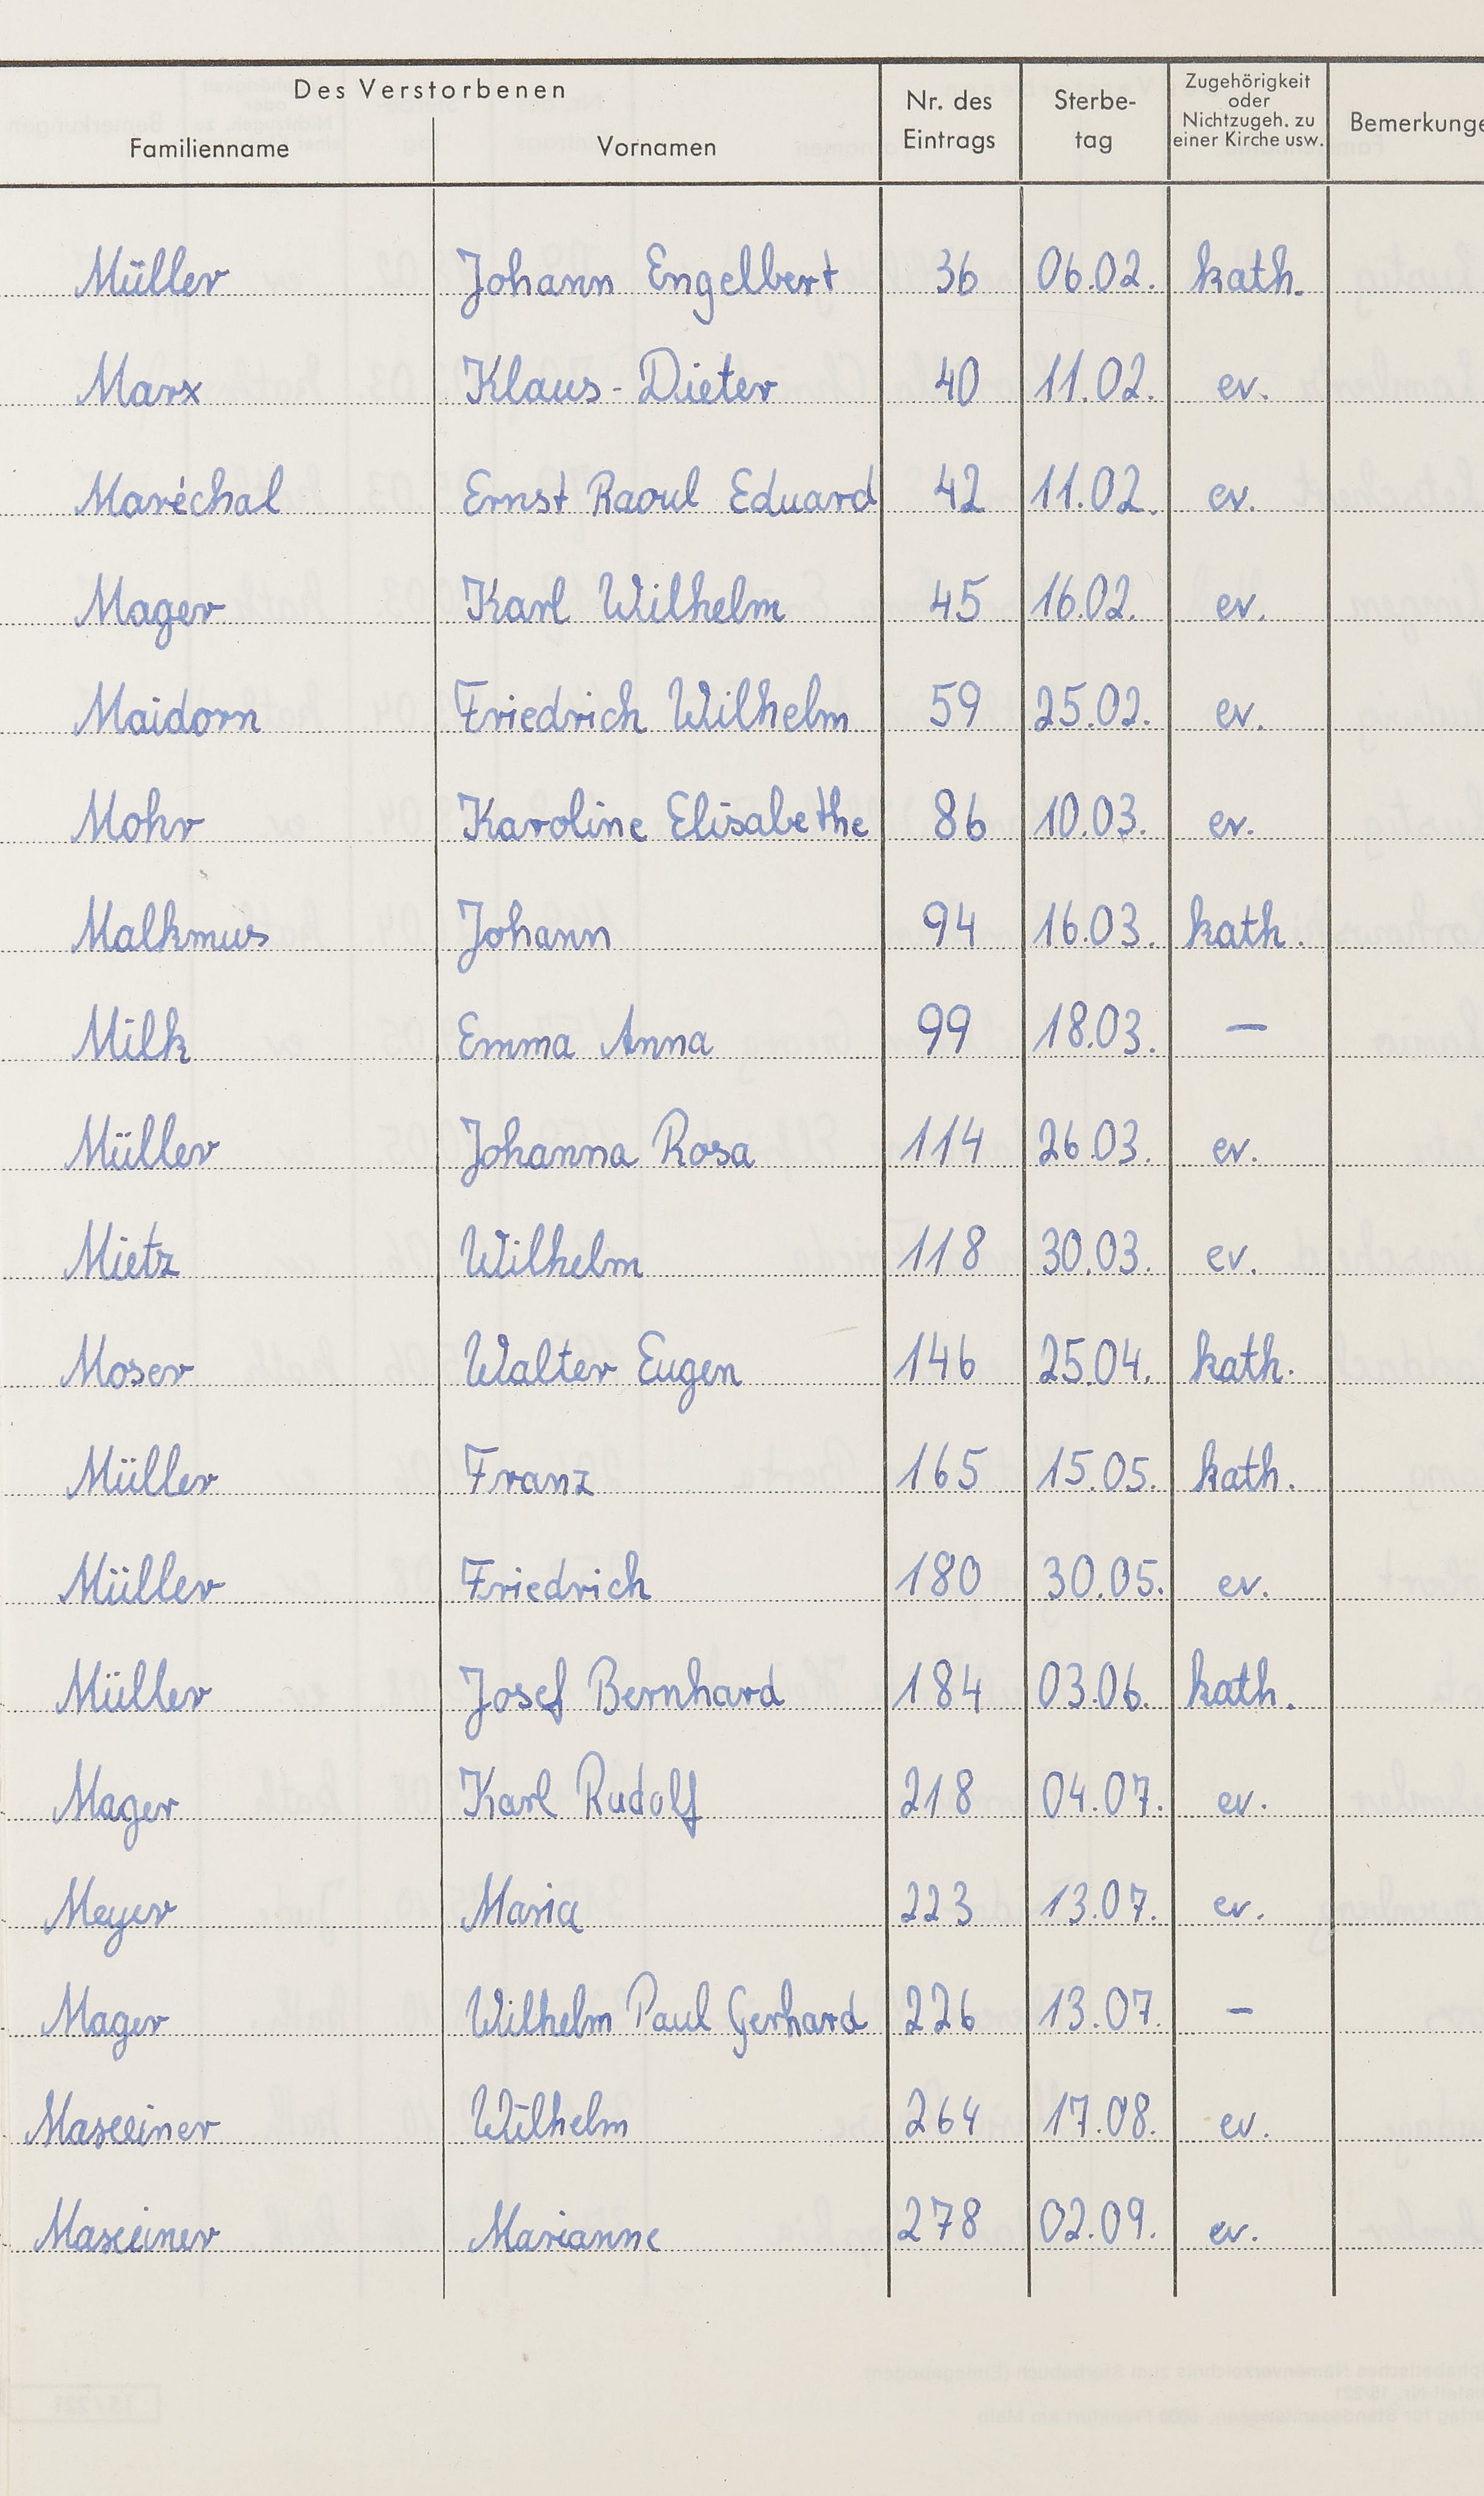 Des Verstorbenen
Familienname Vornamen Nr. des Eintrags Sterbe- tag Zugehörigkeit oder Nichtzugeh. zu einer Kirche usw. Bemerkunge
Müller Johann Engelbert 36 06.02. kath.
Marx Klaus-Dieter 40 11.02. ev.
Maréchal Ernst Raoul Eduard 42 11.02. ev.
Mager Karl Wilhelm 45 16.02. ev.
Maidorn Friedrich Wilhelm 59 25.02. ev.
Mohr Karoline Elisabethe 86 10.03. ev.
Malkmus Johann 94 16.03. kath.
Milk Emma Anna 99 18.03. —
Müller Johanna Rosa 114 26.03. ev.
Mietz Wilhelm 118 30.03. ev.
Moser Walter Eugen 146 25.04. kath.
Müller Franz 165 15.05. kath.
Müller Friedrich 180 30.05. ev.
Müller Josef Bernhard 184 03.06. kath.
Mager Karl Rudolf 218 04.07. ev.
Meyer Maria 223 13.07. ev.
Mager Wilhelm Paul Gerhard 226 13.07. —
Wilhelm 264 17.08. ev.
Marianne 278 02.09. ev.